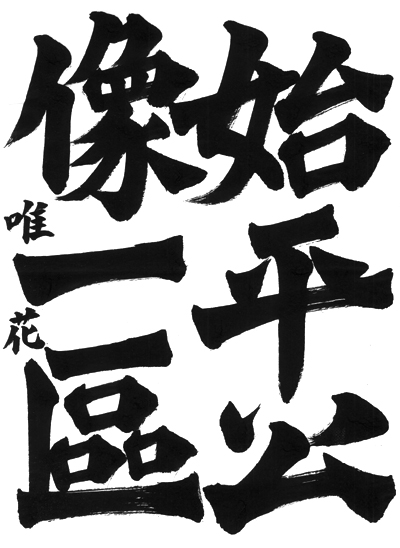 始平公
像一區
唯花